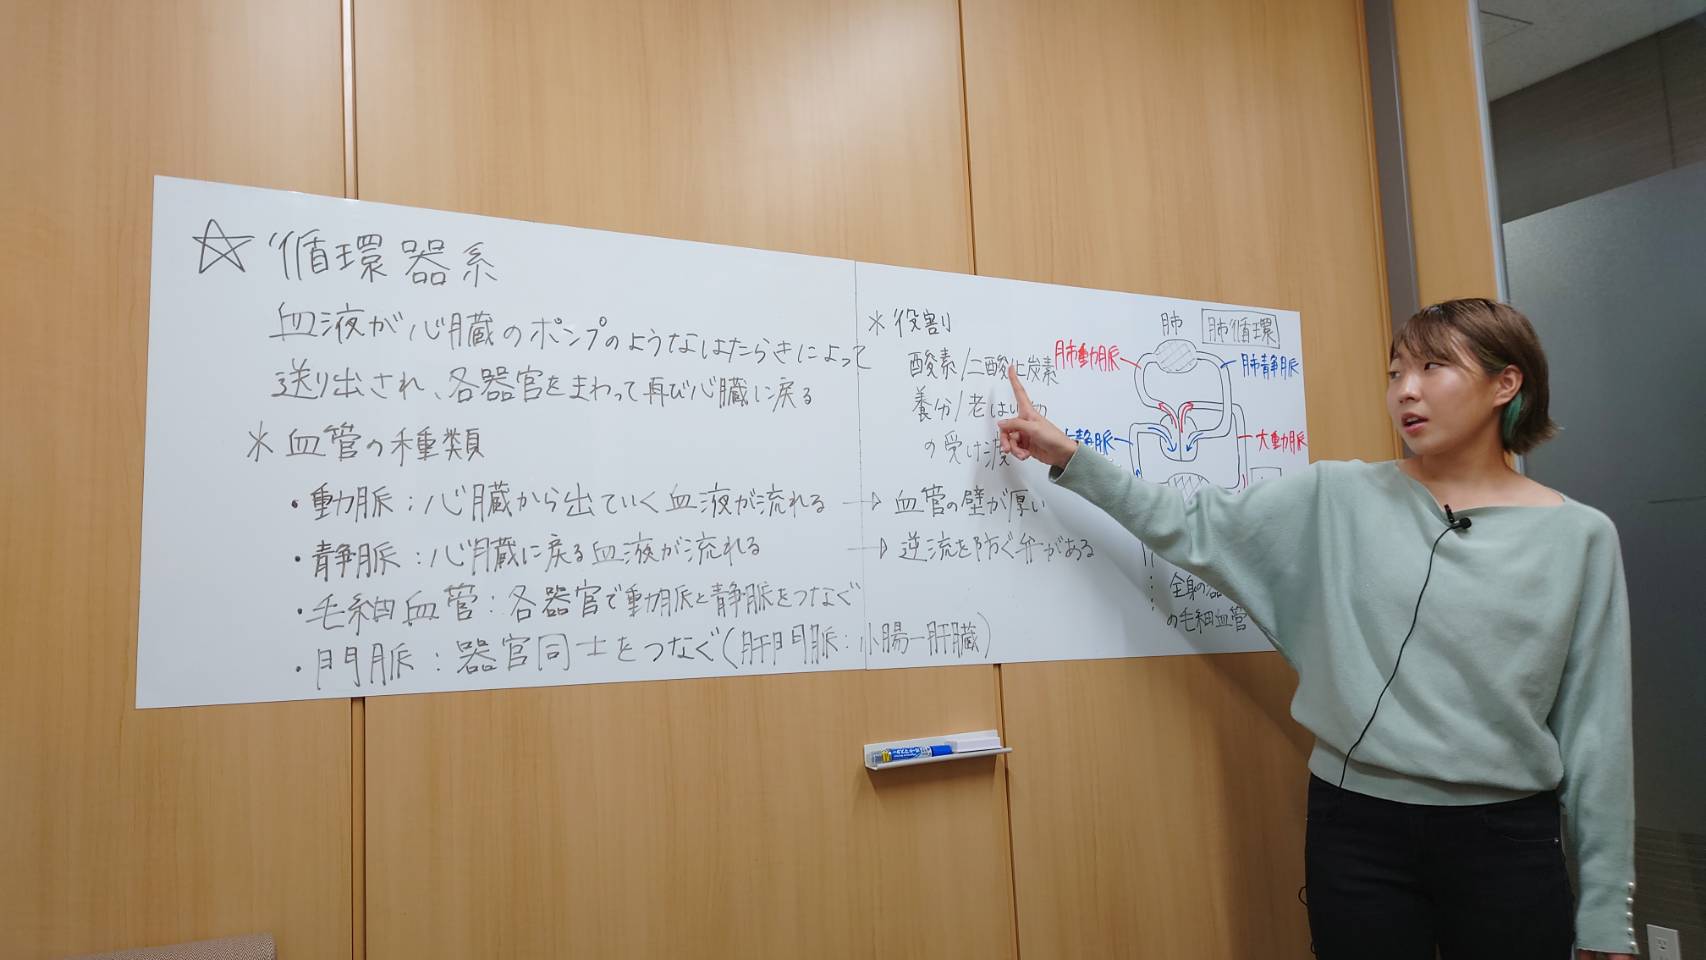 ☆循環器系
血液が心臓のポンプのようなはたらきによって
送り出され、各器官をまわって再び心臓に戻る
＊血管の種類
・動脈：心臓から出ていく血液が流れる → 血管の壁が厚い
・静脈：心臓に戻る血液が流れる → 逆流を防ぐ弁がある
・毛細血管：各器官で動脈と静脈をつなぐ
・門脈：器官同士をつなぐ(肝門脈：小腸ー肝臓)
＊役割
酸素/二酸化炭素
養分/老は
の受け渡
肺 肺循環
肺動脈
肺静脈
静脈
大動脈
全身の
の毛細血管